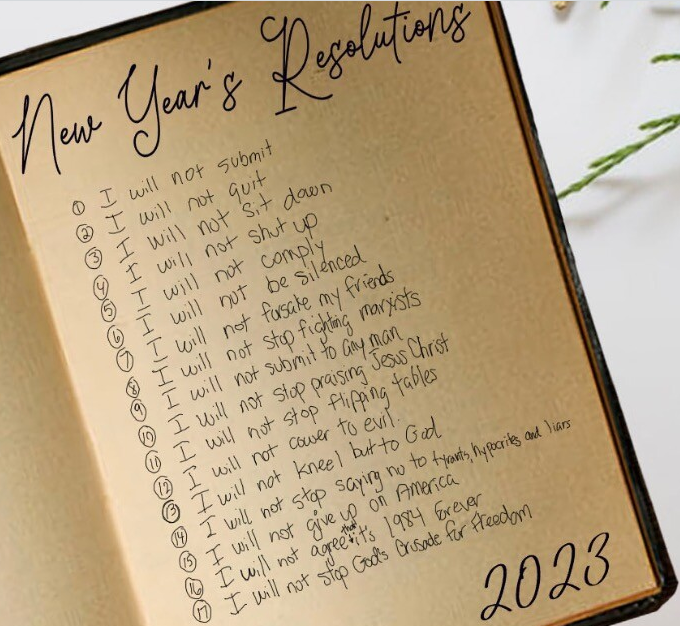 New Year's Resolutions
① I will not submit
② I will not quit
③ I will not sit down
④ I will not shut up
⑤ I will not comply
⑥ I will not be silenced
⑦ I will not forsake my friends
⑧ I will not stop fighting marxists
⑨ I will not submit to any man
⑩ I will not stop praising Jesus Christ
⑪ I will not stop flipping tables
⑫ I will not cower to evil.
⑬ I will not kneel but to God
⑭ I will not stop saying no to tyrants, hypocrites and liars
⑮ I will not give up on America
⑯ I will not agree that it's 1984 forever
⑰ I will not stop God's Crusade for Freedom
2023